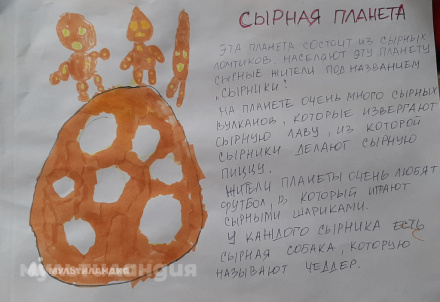 СЫРНАЯ ПЛАНЕТА
ЭТА ПЛАНЕТА СОСТОИТ ИЗ СЫРНЫХ
ЛОМТИКОВ. НАСЕЛЯЮТ ЭТУ ПЛАНЕТУ
СЫРНЫЕ ЖИТЕЛИ ПОД НАЗВАНИЕМ
„СЫРНИКИ".
НА ПЛАНЕТЕ ОЧЕНЬ МНОГО СЫРНЫХ
ВУЛКАНОВ, КОТОРЫЕ ИЗВЕРГАЮТ
СЫРНУЮ ЛАВУ, ИЗ КОТОРОЙ
СЫРНИКИ ДЕЛАЮТ СЫРНУЮ
ПИЦЦУ.
ЖИТЕЛИ ПЛАНЕТЫ ОЧЕНЬ ЛЮБЯТ
ФУТБОЛ, В КОТОРЫЙ ИГРАЮТ
СЫРНЫМИ ШАРИКАМИ.
У КАЖДОГО СЫРНИКА ЕСТЬ
СЫРНАЯ СОБАКА, КОТОРУЮ
НАЗЫВАЮТ ЧЕДДЕР.
мультиландия
МУЛЬТИЛАНДИЯ